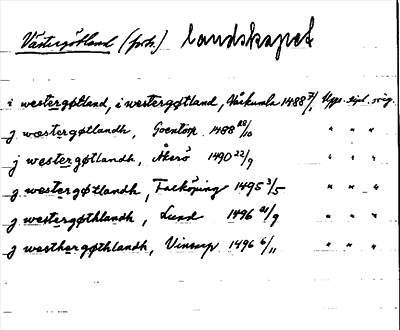 Västergötland (forts.) landskapet
i westergøtland, i westergøtland, Vårkumla 1488 7/1 Upps. dipl. svag.
j wæstergøtlandh, Goentorp 1488 28/10 " " "
j westergøtlandh, Åkerö 1490 22/9 " " "
j westergøtlandh, Falköping 1495 3/5 " " "
j westergøthlandh, Lund 1496 21/9 " " "
j westhergøthlandh, Vinstorp 1496 6/11 " " "